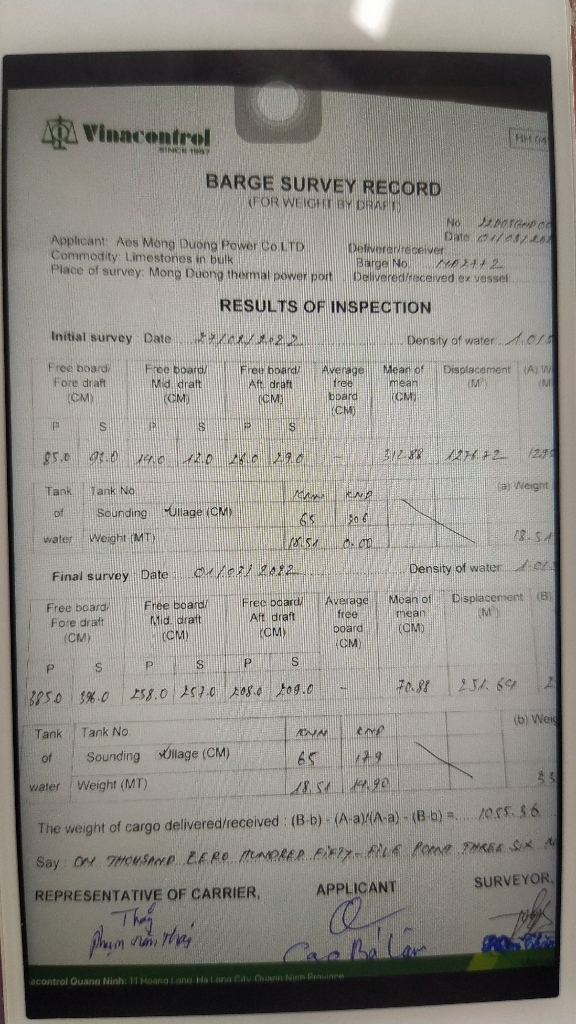 Vinacontrol
SINCE 1957
BARGE SURVEY RECORD
(FOR WEIGHT BY DRAFT)
No
Applicant: Aes Mong Duong Power Co LTD Deliverer/receiver Date
Commodity: Limestones in bulk Barge No.
Place of survey: Mong Duong thermal power port Delivered/received ex vessel
RESULTS OF INSPECTION
Initial survey Date Density of water
Free board/ Fore draft (CM) Free board/ Mid. draft (CM) Free board/ Aft. draft (CM) Average free board (CM) Mean of mean (CM) Displacement (M³) (A)
P S P S P S
85.0 14.0 12.0 29.0 - 312.88 1276.72
Tank Tank No KNN KNP (a) Weight
of Sounding Ullage (CM) 65 306
water Weight (MT) 18.51 0.00 18.51
Final survey Date 01/03/2022 Density of water
Free board/ Fore draft (CM) Free board/ Mid. draft (CM) Free board/ Aft. draft (CM) Average free board (CM) Mean of mean (CM) Displacement (M³) (B)
P S P S P S
385.0 396.0 258.0 257.0 208.0 209.0 - 70.88 251.64
Tank Tank No KNN KNP (b)
of Sounding Ullage (CM) 65 179
water Weight (MT) 18.51 14.90
The weight of cargo delivered/received : (B-b) - (A-a)/(A-a) - (B-b) = 1055.36
Say ON THOUSAND ZERO HUNDRED FIFTY-FIVE POINT THREE SIX
REPRESENTATIVE OF CARRIER, APPLICANT SURVEYOR,
Cao Bá Lâm
acontrol Quang Ninh: 11 Hoang Long, Ha Long City, Quang Ninh Province